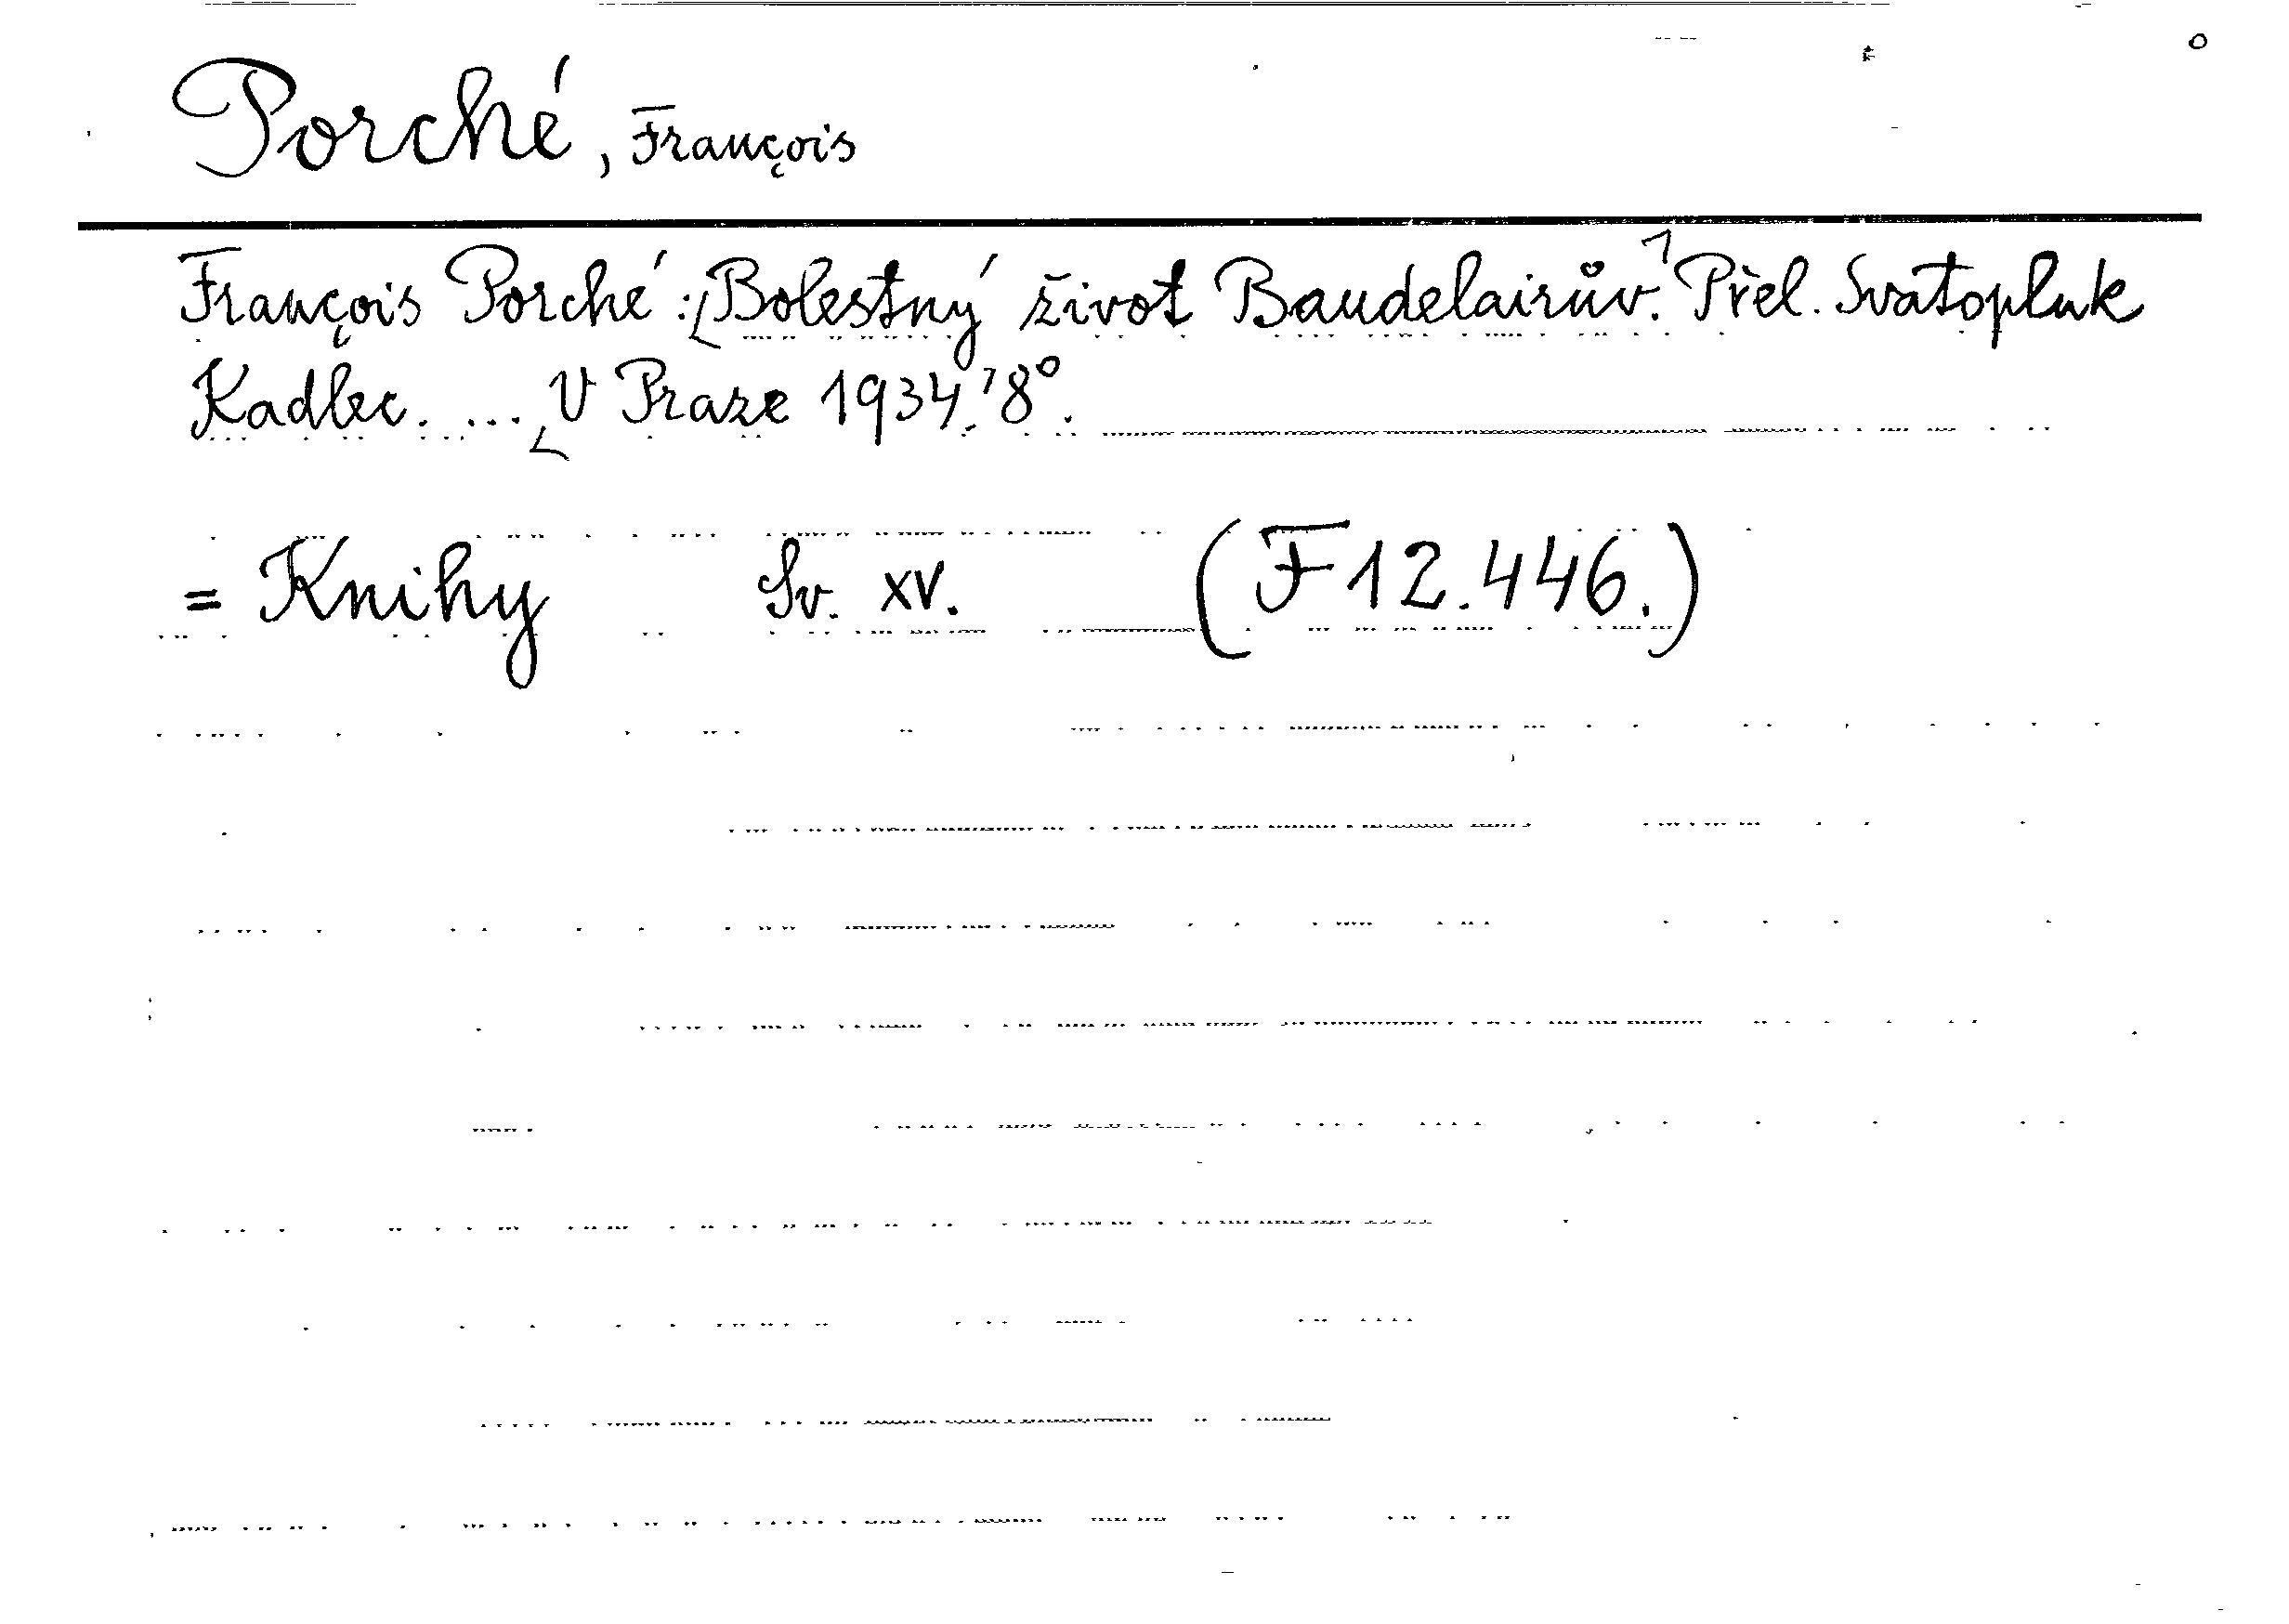 Porché, François
François Porché: [Bolestný život Baudelairův.] Přel. Svatopluk
Kadlec. ... [V Praze 1934.] 8°.
= Knihy Sv. XV. (F 12.446.)